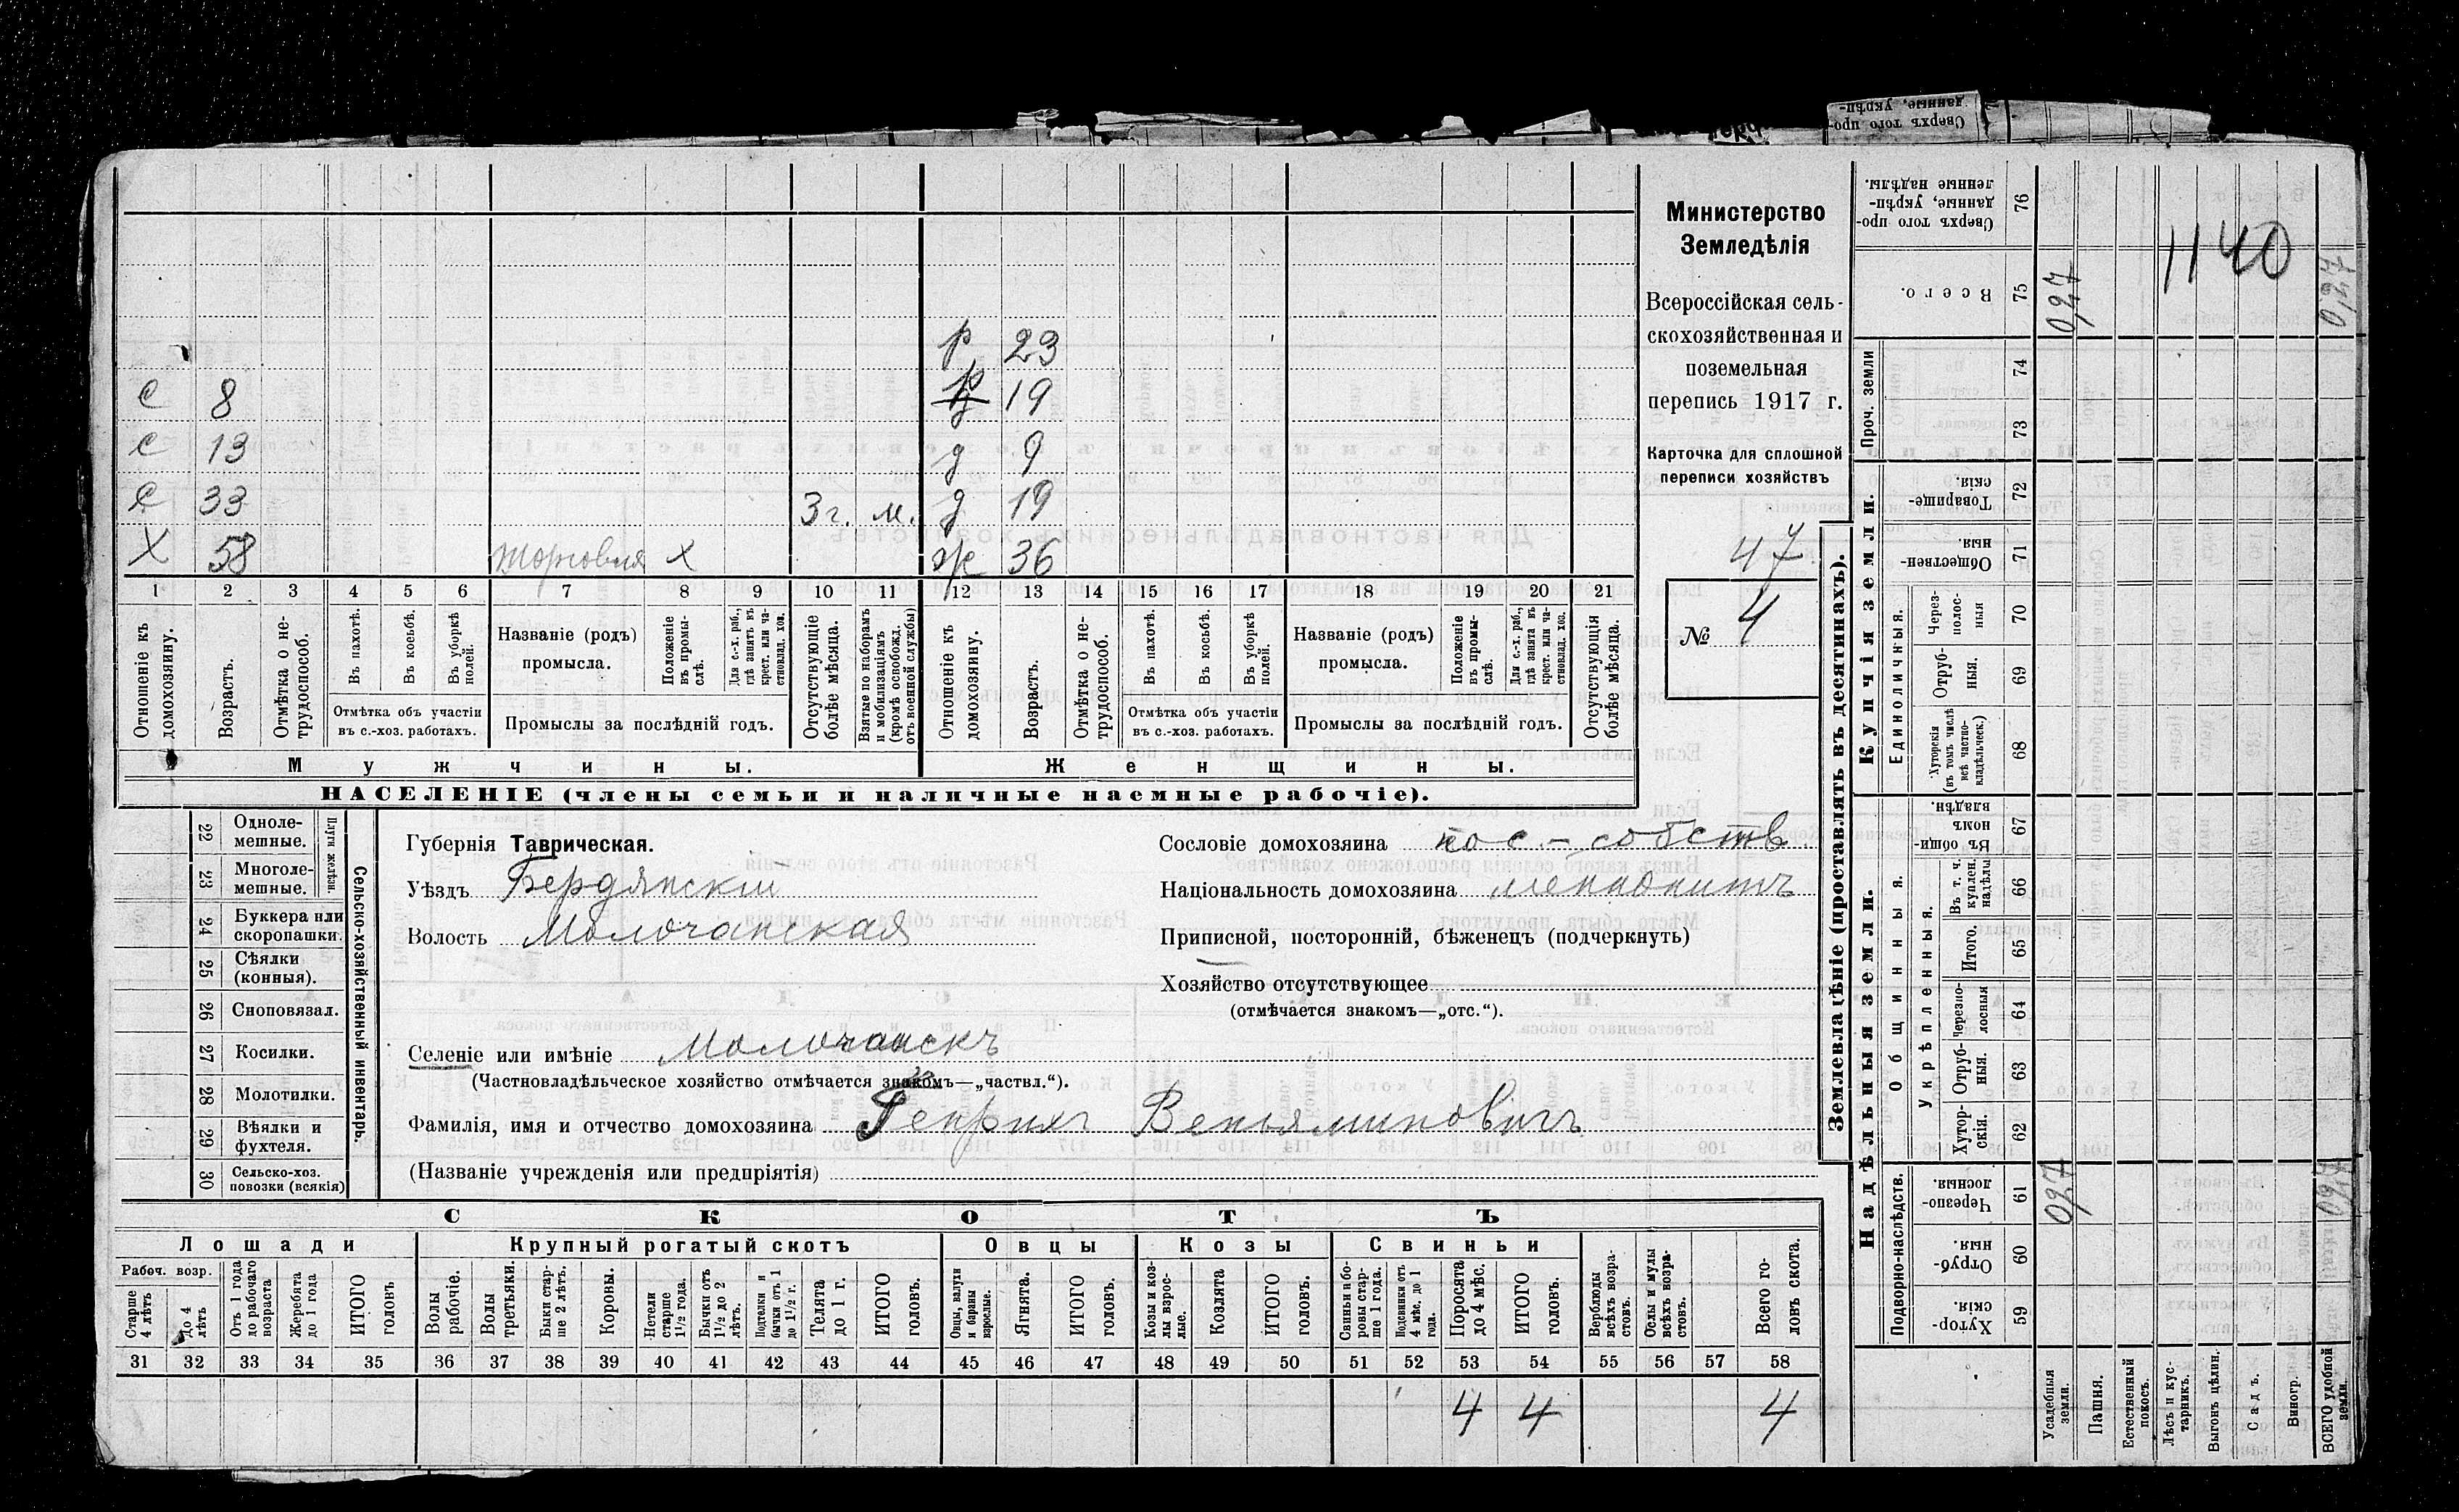 Сверхъ того про-
данные, укрѣп-
С 8
С 13
С 33 3 г. м.
Х 58 торговля х
р 23
р 19
д 9
д 19
ж 36
1 2 3 4 5 6 7 8 9 10 11 12 13 14 15 16 17 18 19 20 21
Отношеніе къ домохозяину.
Возрастъ.
Отмѣтка о не-трудоспособ.
Въ пахотѣ.
Въ косьбѣ.
Въ уборкѣ полей.
Отмѣтка объ участіи
въ с.-хоз. работахъ.
Названіе (родъ)
промысла.
Положеніе въ промы-слѣ.
Для с.-х. раб., гдѣ занятъ въ крест. или ча-стновлад. хоз.
Промыслы за послѣдній годъ.
Отсутствующіе болѣе мѣсяца.
Взятые по наборамъ и мобилизаціямъ (кромѣ освобожд. отъ военной службы)
Отношеніе къ домохозяину.
Возрастъ.
Отмѣтка о не-трудоспособ.
Въ пахотѣ.
Въ косьбѣ.
Въ уборкѣ полей.
Отмѣтка объ участіи
въ с.-хоз. работахъ.
Названіе (родъ)
промысла.
Положеніе въ промы-слѣ.
Для с.-х. раб., гдѣ занята въ крест. или ча-стновлад. хоз.
Промыслы за послѣдній годъ.
Отсутствующія болѣе мѣсяца.
Мужчины.
Женщины.
НАСЕЛЕНІЕ (члены семьи и наличные наемные рабочіе).
Министерство
Земледѣлія
Всероссійская сель-
скохозяйственная и
поземельная
перепись 1917 г.
Карточка для сплошной
переписи хозяйствъ
47
№ 4
22 Одноле-мешные.
23 Многоле-мешные.
Плуги желѣзн.
24 Буккера или скоропашки.
25 Сѣялки (конныя).
26 Сноповязал.
27 Косилки.
28 Молотилки.
29 Вѣялки и фухтеля.
30 Сельско-хоз. повозки (всякія)
Сельско-хозяйственный инвентарь.
Губернія Таврическая.
Уѣздъ Бердянскій
Волость Молочанская
Селеніе или имѣніе Молочанскъ
(Частновладѣльческое хозяйство отмѣчается знакомъ—„частвл.“).
Фамилія, имя и отчество домохозяина Генрихъ Веньяминовичъ
(Названіе учрежденія или предпріятія)
Сословіе домохозяина пос-собств.
Національность домохозяина менонитъ
Приписной, посторонній, бѣженецъ (подчеркнуть)
Хозяйство отсутствующее
(отмѣчается знакомъ—„отс.“).
СКОТЪ
Лошади
Крупный рогатый скотъ
Овцы
Козы
Свиньи
Рабоч. возр.
Старше 4 лѣтъ
До 4 лѣтъ
Отъ 1 года до рабочаго возраста
Жеребята до 1 года
ИТОГО головъ
Волы рабочіе.
Волы третьяки.
Быки стар-ше 2 лѣтъ.
Коровы.
Нетели старше 1½ года.
Бычки отъ 1½ до 2 лѣтъ.
Подтелки и бычки отъ 1 до 1½ г.
Телята до 1 г.
ИТОГО головъ.
Овцы, валухи и бараны взрослые.
Ягнята.
ИТОГО головъ.
Козы и коз-лы взрос-лые.
Козлята
ИТОГО головъ.
Свиньи и бо-ровы стар-ше 1 года.
Подсвинки отъ 4 мѣс. до 1 года.
Поросята до 4 мѣс.
ИТОГО головъ.
Верблюды всѣхъ возра-стовъ.
Ослы и мулы всѣхъ возра-стовъ.
Всего го-ловъ скота.
31 32 33 34 35 36 37 38 39 40 41 42 43 44 45 46 47 48 49 50 51 52 53 54 55 56 57 58
4 4 4
Землевладѣніе (проставлять въ десятинахъ).
Надѣльныя земли.
Купчія земли.
Проч. земли
Сверхъ того про-данные, укрѣп-ленные надѣлы.
76
Всего.
75
74
73
Товарище-скія.
72
Обществен-ныя.
71
Единоличныя.
Через-полос-ныя
70
Отруб-ныя.
69
Хуторскія (въ томъ числѣ всѣ частно-владѣльческ.)
68
Общинныя.
Въ общи-номъ владѣн.
67
Укрѣпленныя.
Въ т. ч. куплен. надѣлы
66
Итого.
65
Черезпо-лосныя
64
Отруб-ныя.
63
Хутор-скія.
62
Подворно-наслѣдств.
Черезпо-лосныя.
61
Отруб-ныя.
60
Хутор-скія.
59
Усадебныя земли.
Пашня.
Естественный покосъ.
Лѣсъ и кус-тарникъ.
Выгонъ цѣлин.
Садъ.
Виногр.
ВСЕГО удобной земли.
027
027
1140
027
027